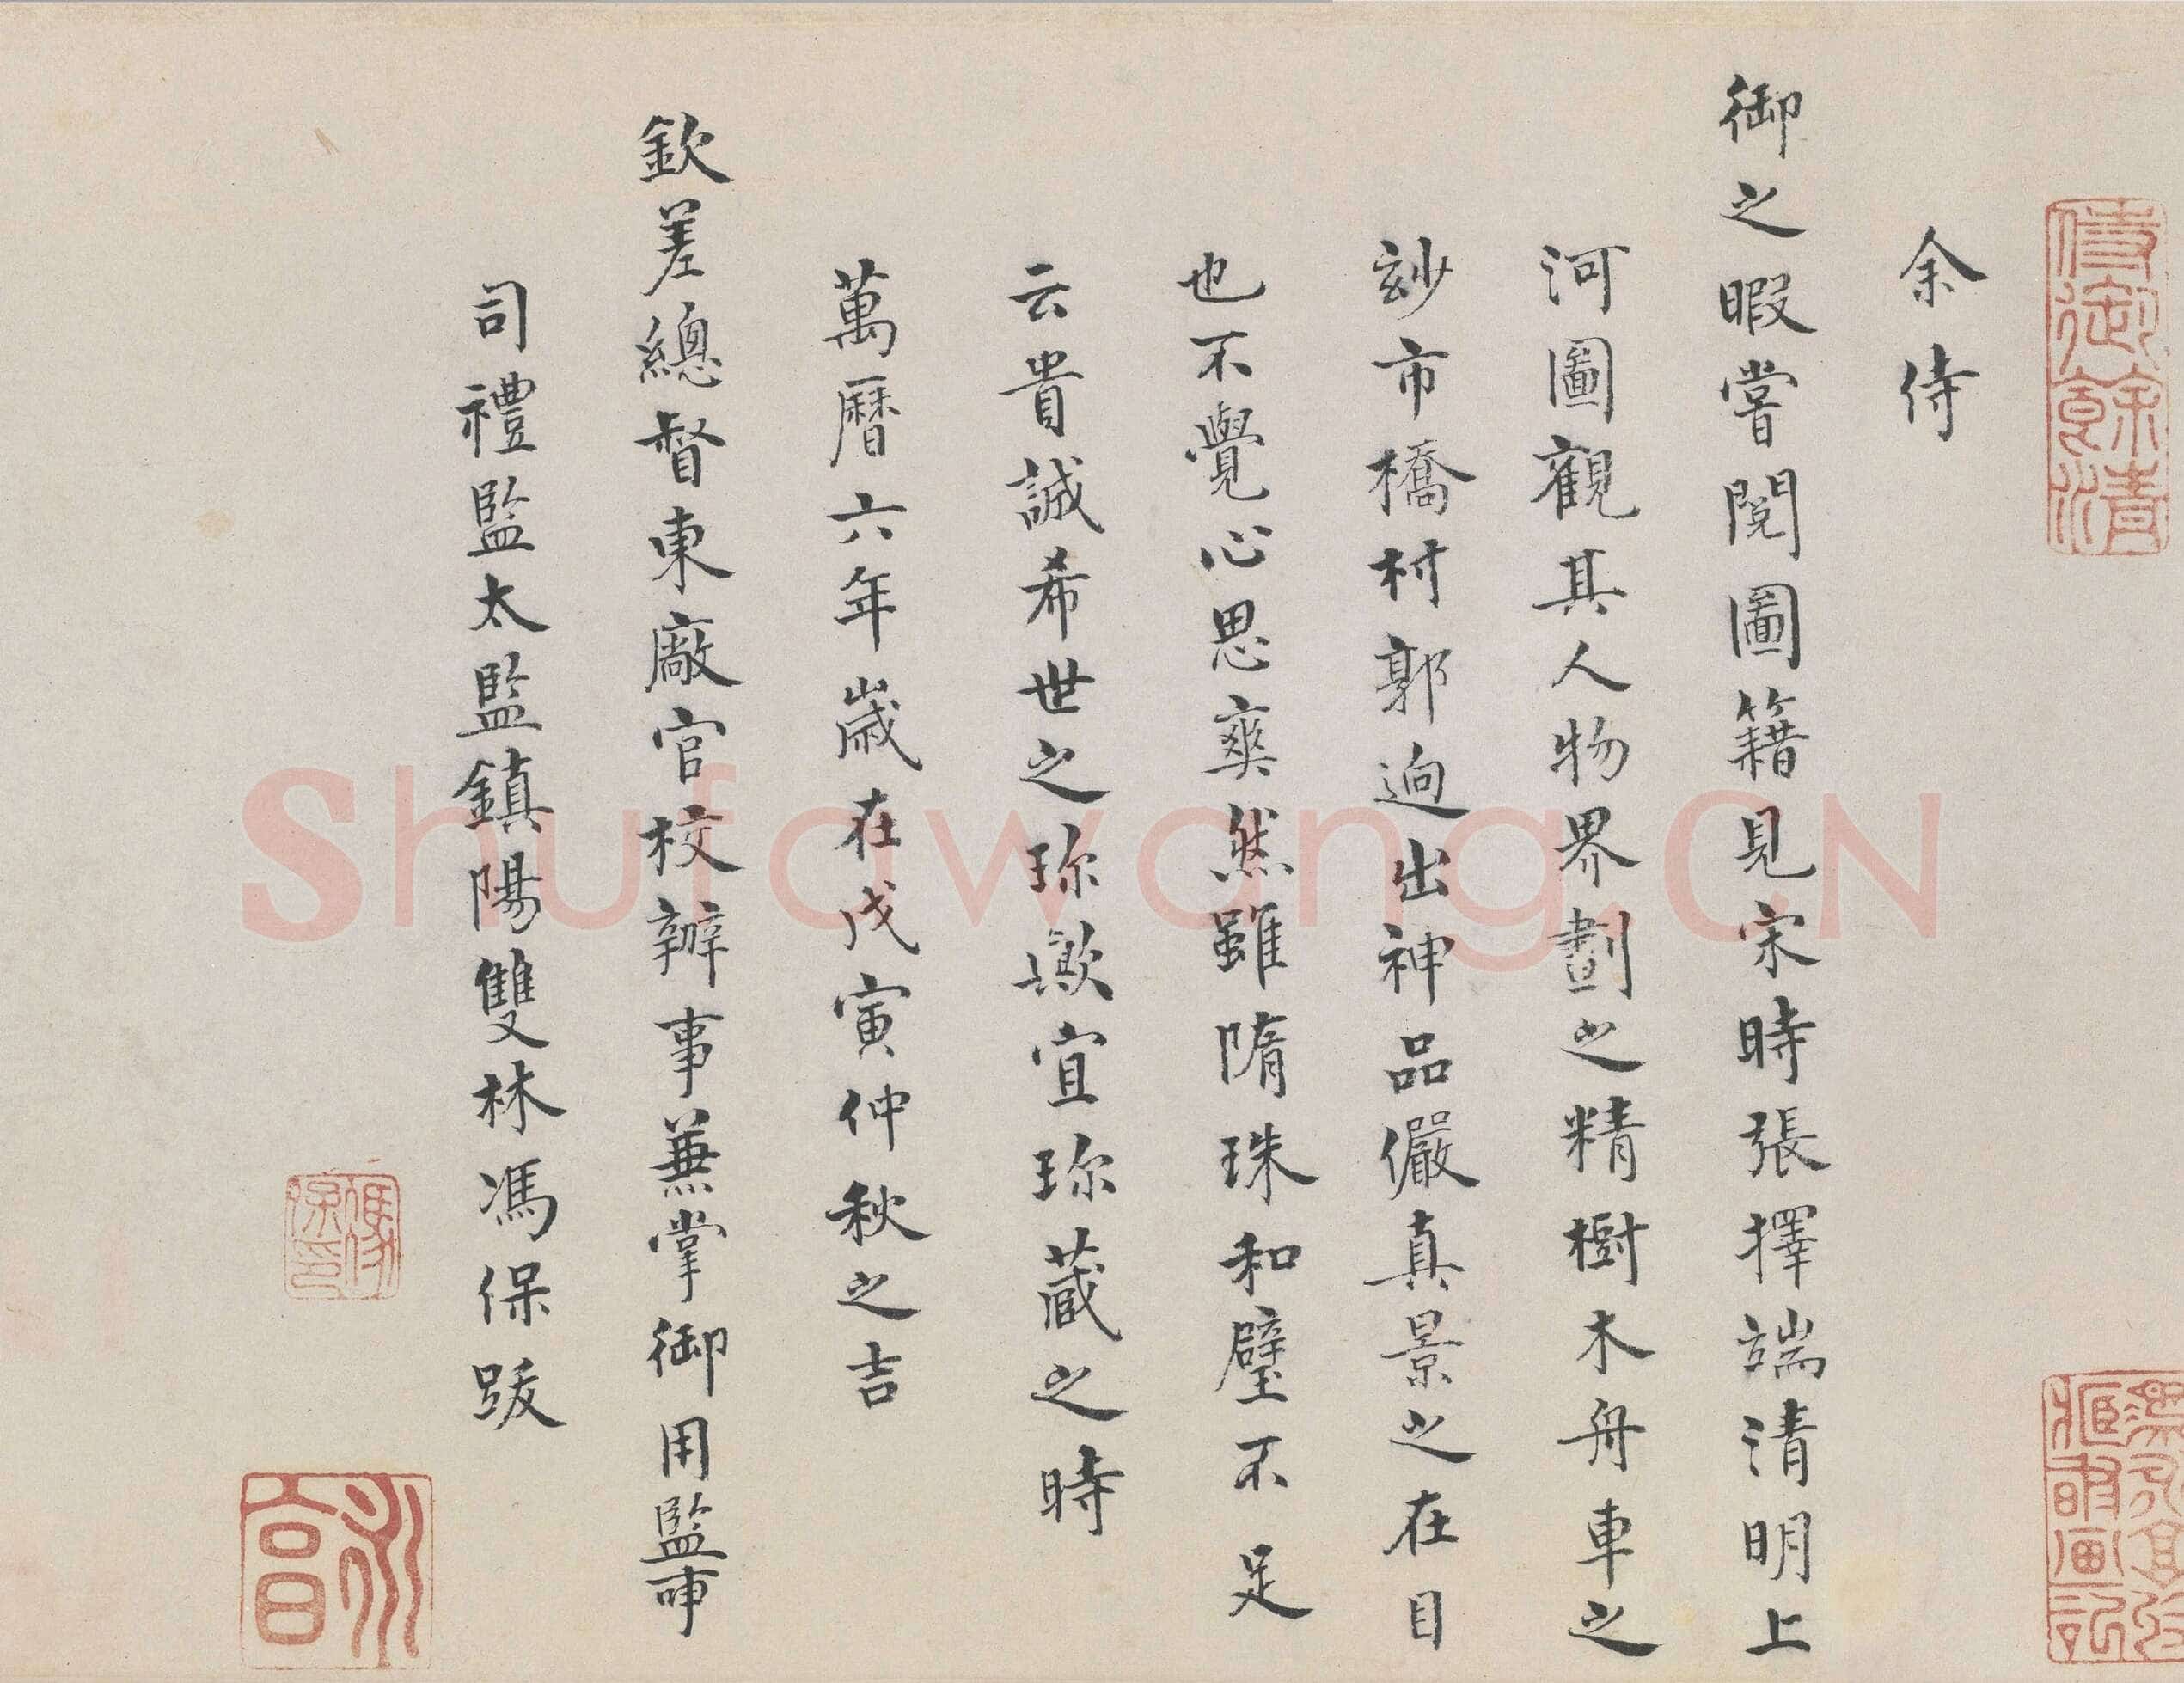 余侍
御之暇嘗閱圖籍見宋時張擇端清明上
河圖觀其人物界劃之精樹木舟車之
玅市橋村郭逈出神品儼真景之在目
也不覺心思爽然雖隋珠和璧不足
云貴誠希世之珎歟宜珎藏之時
萬曆六年歲在戊寅仲秋之吉
欽差總督東廠官校辦事兼掌御用監事
司禮監太監鎮陽雙林馮保跋
侍御餘清
馮保
永昌
shufawang.CN